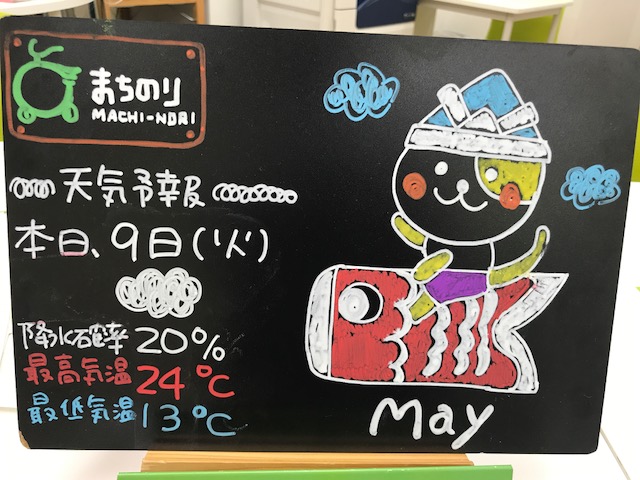 まちのり
MACHI-NORI
天気予報
本日、9日(火)
降水確率 20%
最高気温 24℃
最低気温 13℃
May